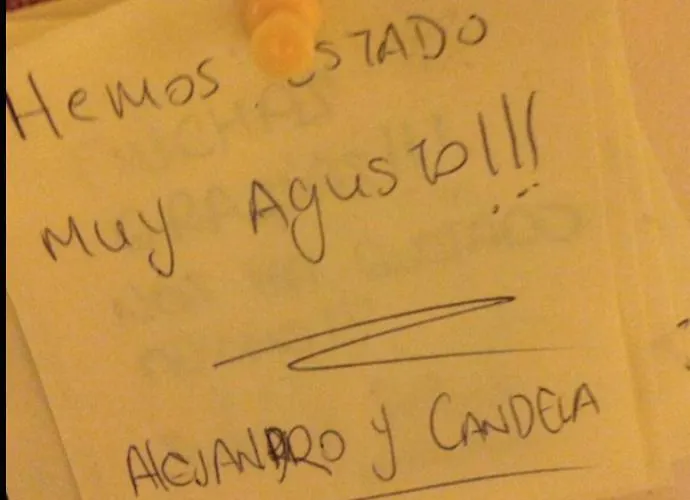 Hemos ESTADO
MUY AgUSTO!!!
ALEJANDRO y CANDELA